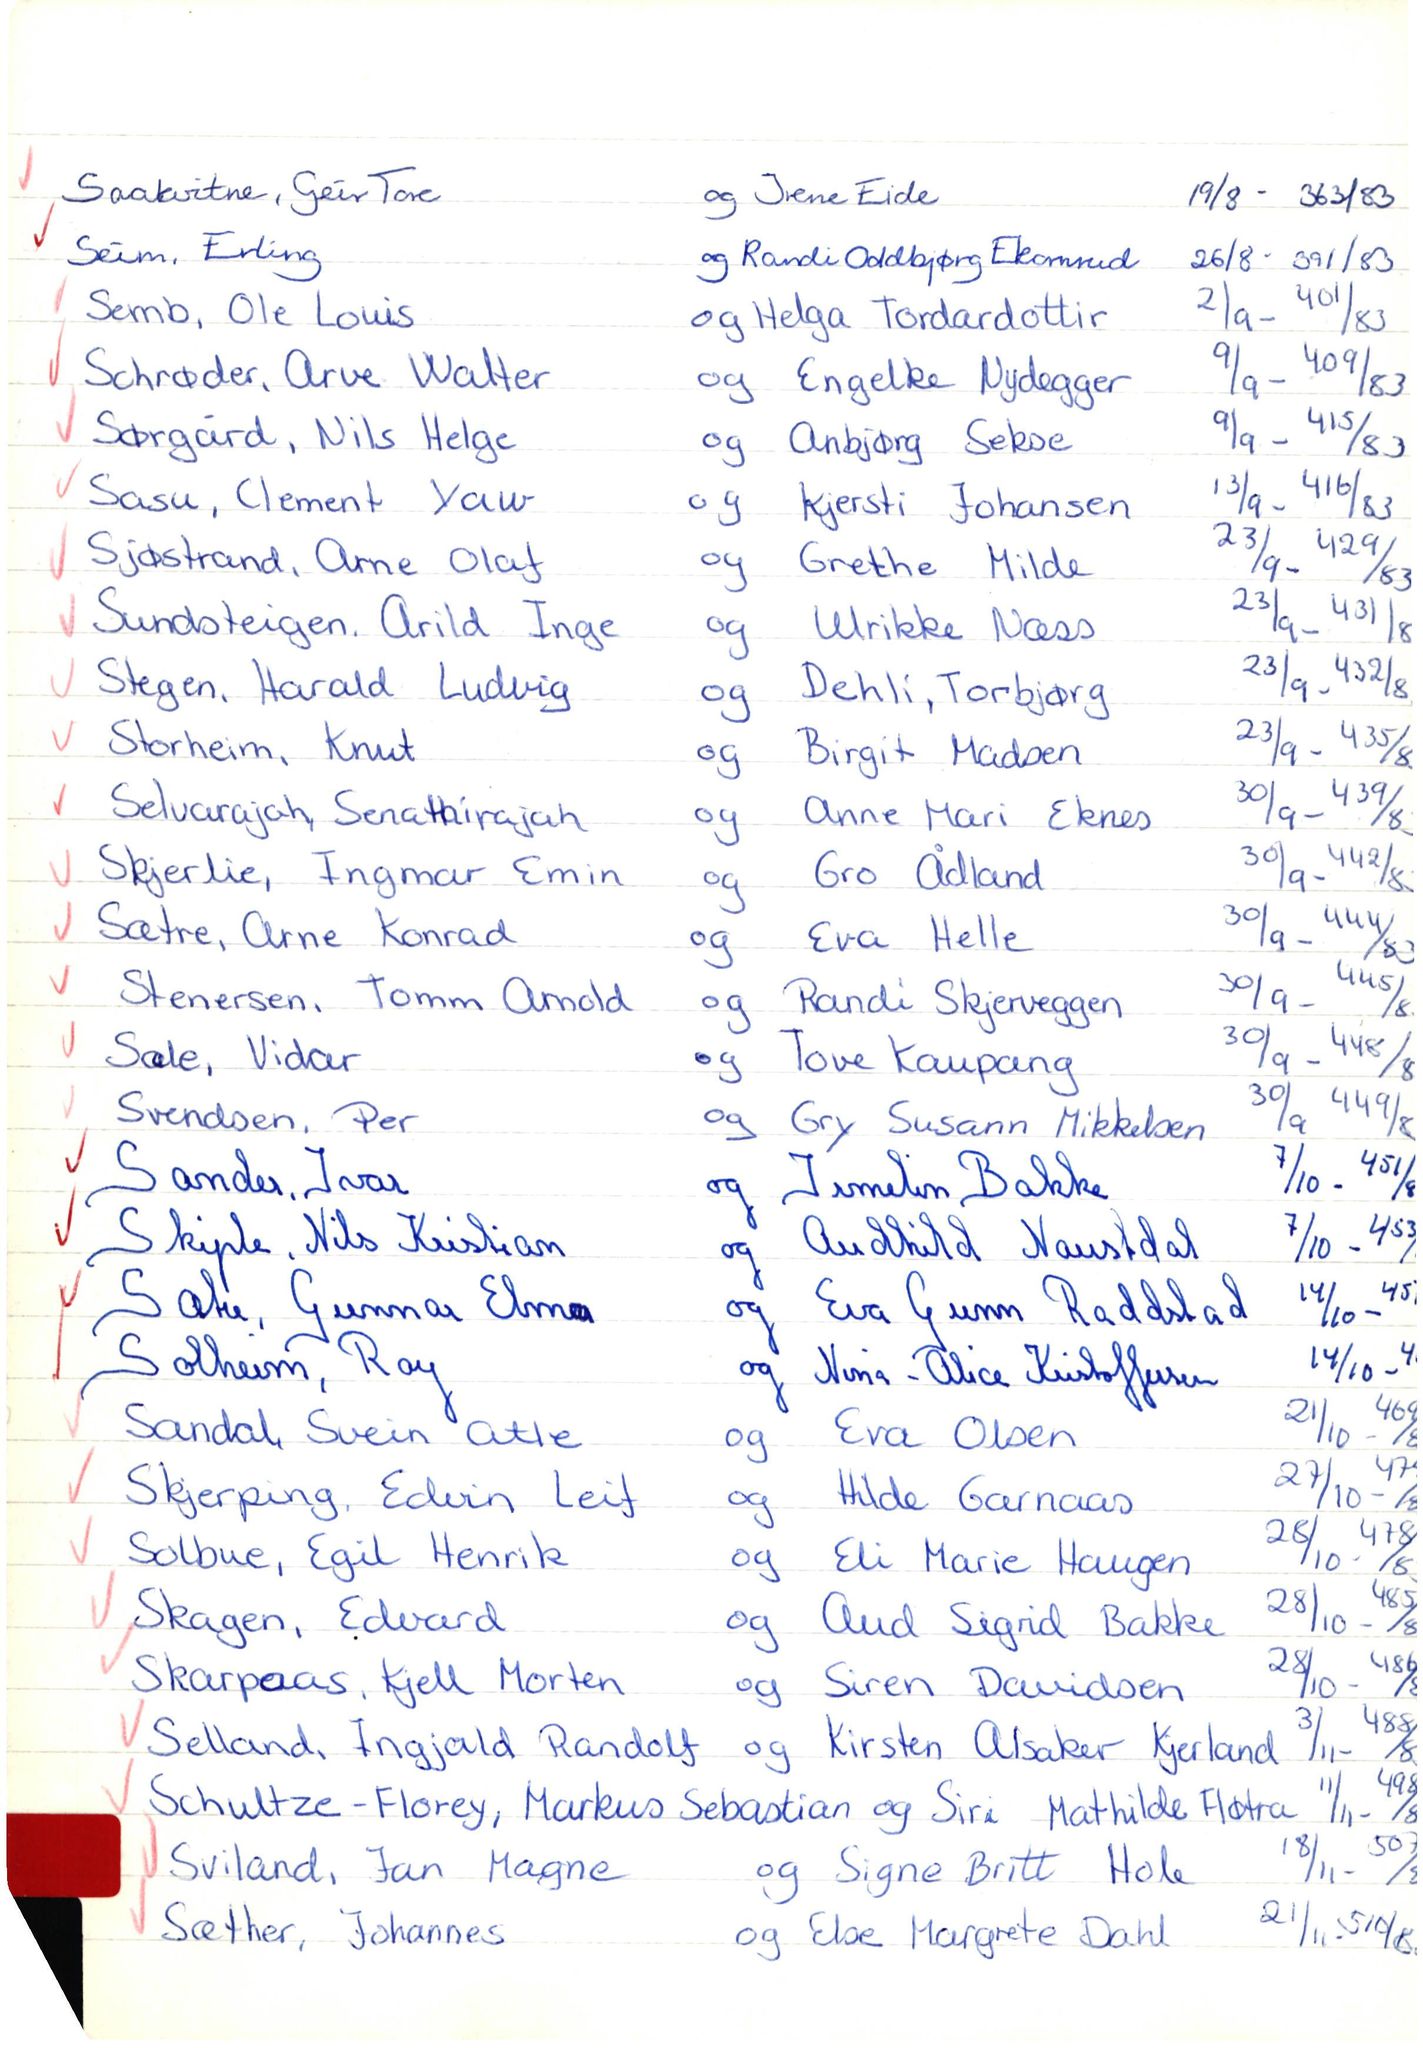 Saakvitne, Geir Tore og Irene Eide 19/8 - 363/83
Seim, Erling og Randi Oddbjørg Ekornrud 26/8 - 391/83
Semb, Ole Louis og Helga Tordardottir 2/9 - 401/83
Schrøder, Arve Walter og Engelke Nydegger 9/9 - 409/83
Sørgård, Nils Helge og Anbjørg Sekse 9/9 - 415/83
Sasu, Clement Yaw og Kjersti Johansen 13/9 - 416/83
Sjøstrand, Arne Olaf og Grethe Milde 23/9 - 429/83
Sundsteigen, Arild Inge og Ulrikke Næss 23/9 - 431/8
Stegen, Harald Ludvig og Dehli, Torbjørg 23/9 - 432/8
Storheim, Knut og Birgit Madsen 23/9 - 435/8
Selvarajah, Senathirajah og Anne Mari Eknes 30/9 - 439/8
Skjerlie, Ingmar Emin og Gro Ådland 30/9 - 442/8
Sætre, Arne Konrad og Eva Helle 30/9 - 444/83
Stenersen, Tomm Arnold og Randi Skjerveggen 30/9 - 445/8
Sæle, Vidar og Tove Kaupang 30/9 - 448/8
Svendsen, Per og Gry Susann Mikkelsen 30/9 449/8
Sander, Ivar og Irmelin Bakke 7/10 - 451/8
Skiple, Nils Kristian og Audhild Naustdal 7/10 - 453/
Sætre, Gunnar Elmar og Eva Gunn Raddstad 14/10 - 45
Solheim, Roy og Nina-Alice Kristoffersen 14/10 - 4
Sandal, Svein Atle og Eva Olsen 21/10 - 469/8
Skjerping, Edvin Leif og Hilde Garnaas 27/10 - 47/8
Solbue, Egil Henrik og Eli Marie Haugen 28/10 - 478/8
Skagen, Edvard og Aud Sigrid Bakke 28/10 - 485/8
Skarpaas, Kjell Morten og Siren Davidsen 28/10 - 486/8
Selland, Ingjald Randolf og Kirsten Alsaker Kjerland 3/11 - 488/8
Schultze-Florey, Markus Sebastian og Siri Mathilde Fløtra 11/11 - 498/8
Sviland, Jan Magne og Signe Britt Hole 18/11 - 507/8
Sæther, Johannes og Else Margrete Dahl 21/11 - 510/8